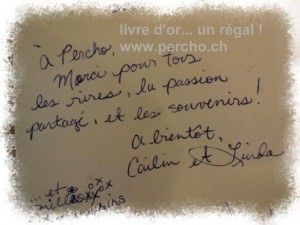 livre d'or... un régal !
www.percho.ch
À Percho,
Merci pour tous
les rires, la passion
partagé, et les souvenirs !
A bientôt,
Cailin et Linda
... et